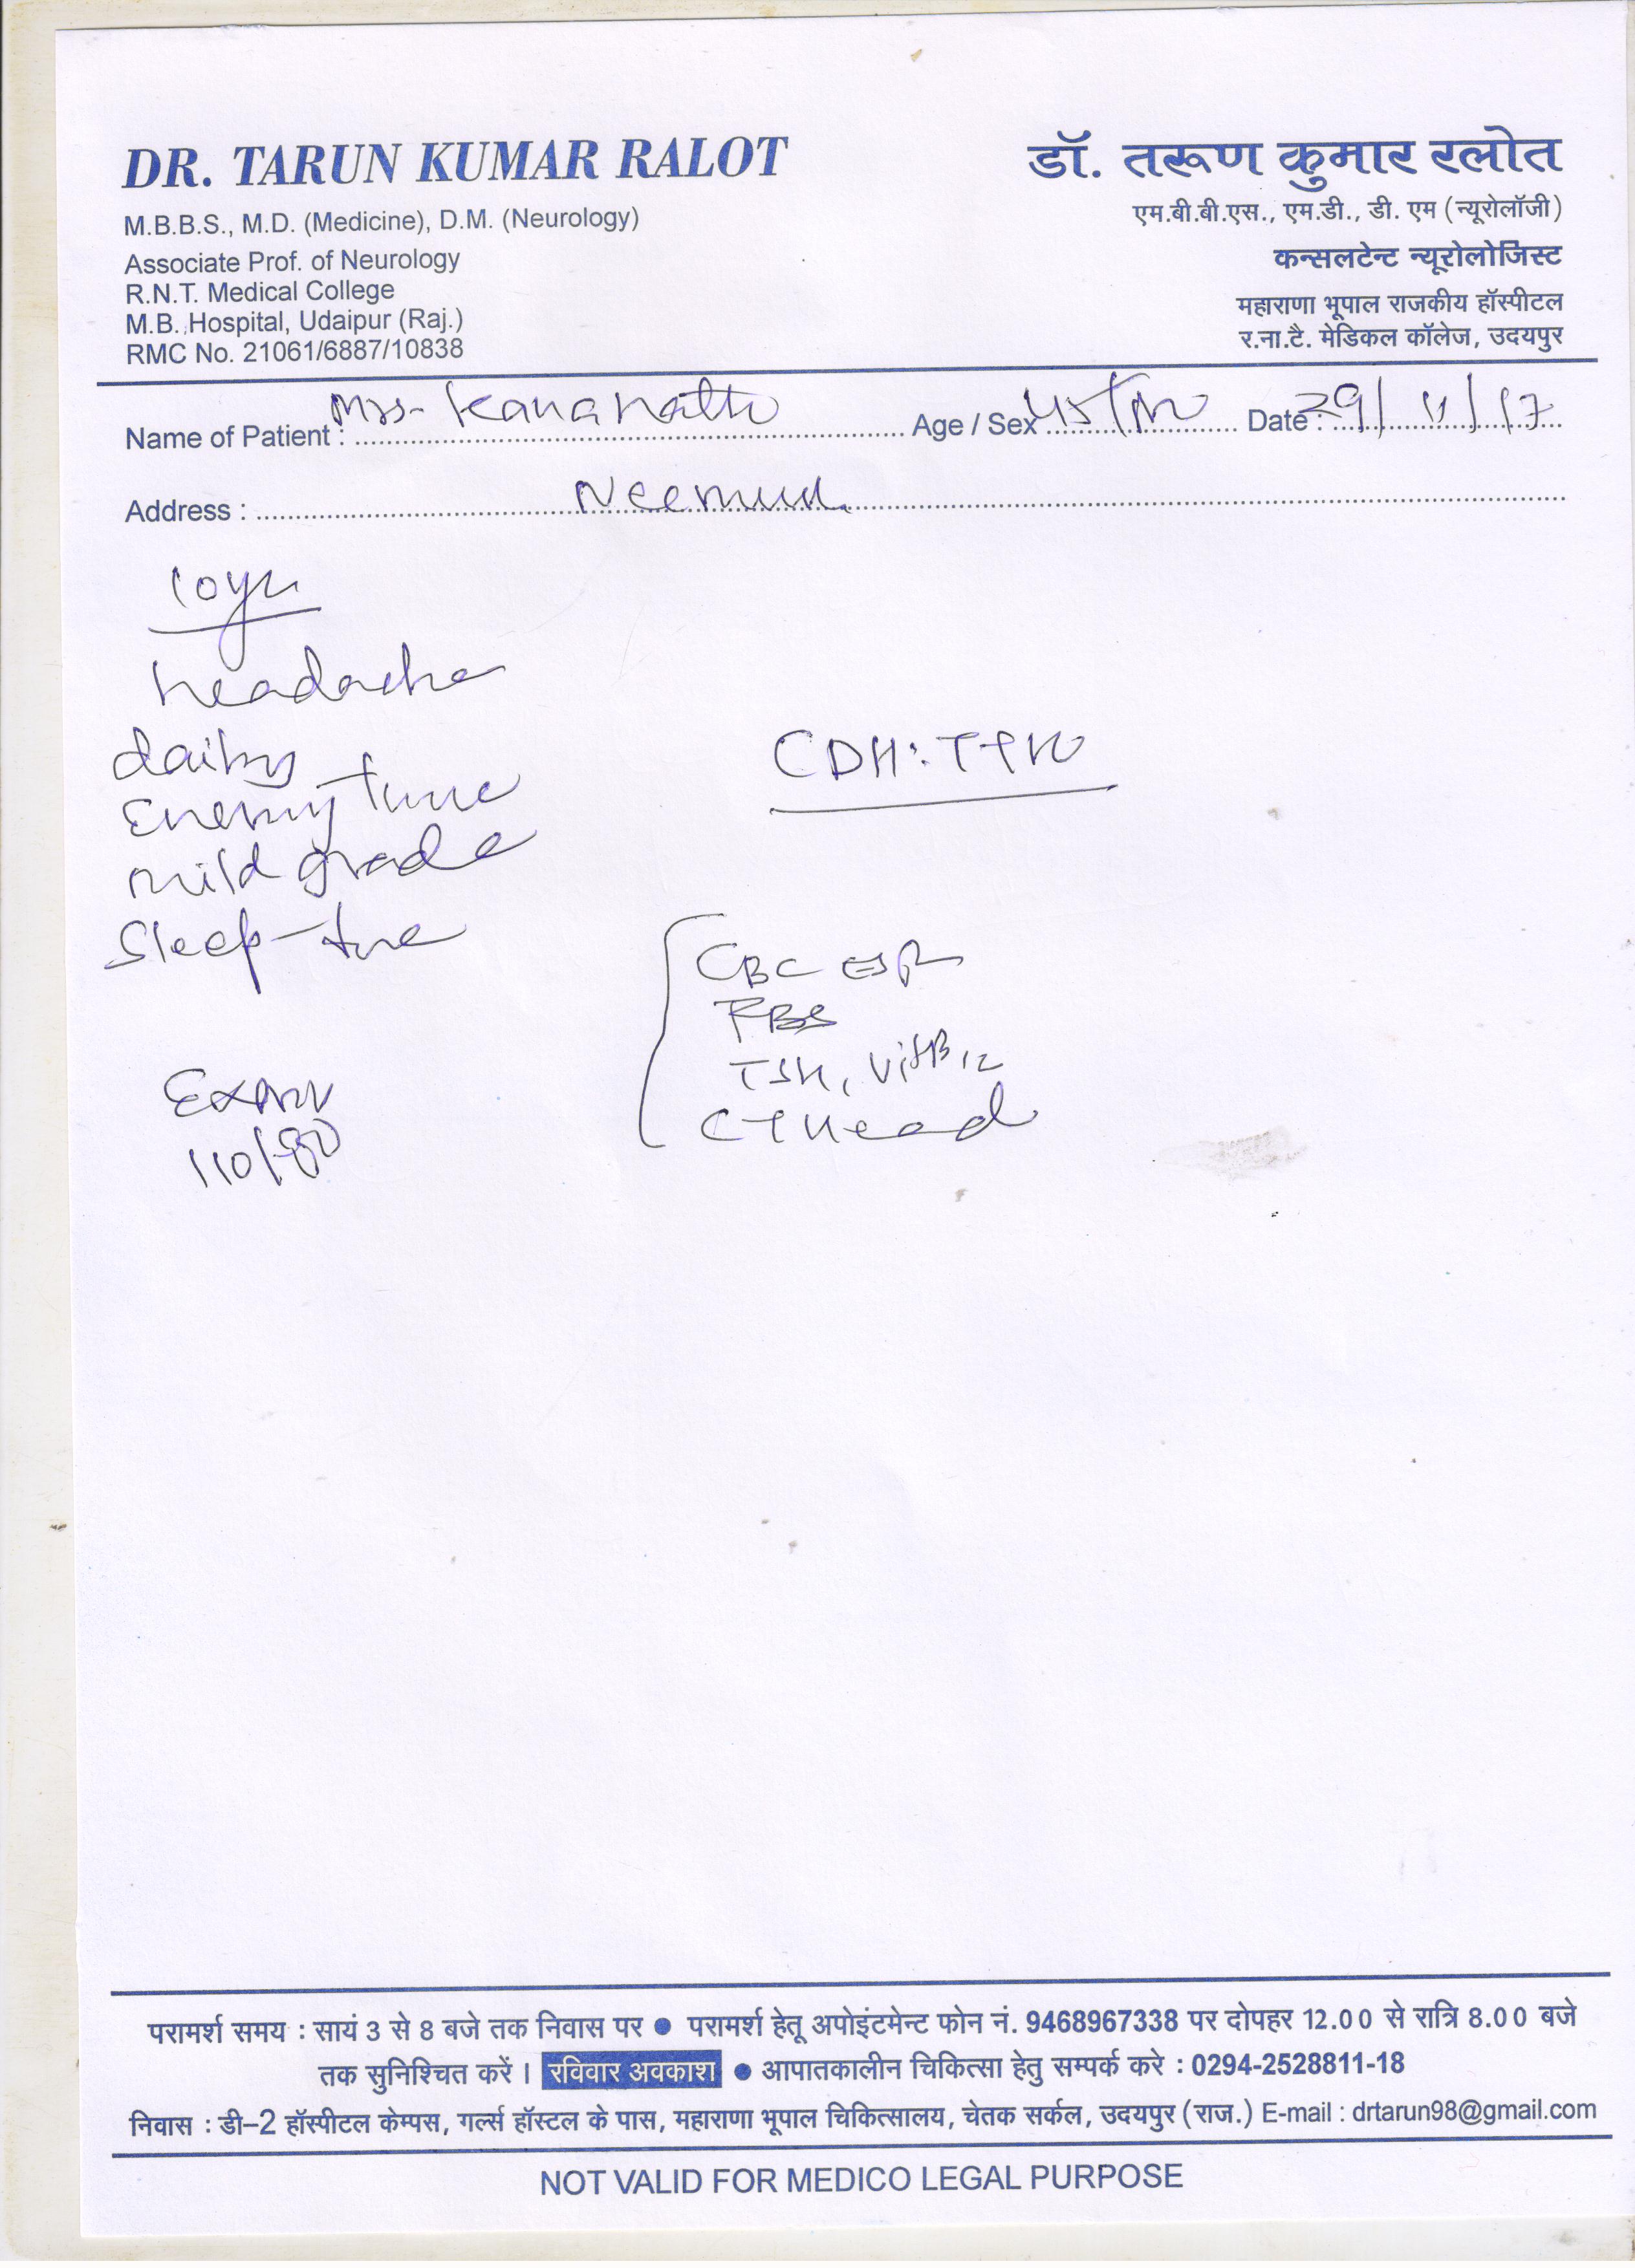 DR. TARUN KUMAR RALOT
M.B.B.S., M.D. (Medicine), D.M. (Neurology)
Associate Prof. of Neurology
R.N.T. Medical College
M.B. Hospital, Udaipur (Raj.)
RMC No. 21061/6887/10838
डॉ. तरूण कुमार रलोत
एम.बी.बी.एस., एम.डी., डी. एम (न्यूरोलॉजी)
कन्सलटेन्ट न्यूरोलोजिस्ट
महाराणा भूपाल राजकीय हॉस्पीटल
र.ना.टै. मेडिकल कॉलेज, उदयपुर
Name of Patient : Age / Sex 45/ Date : 29/11/17
Address :
10yr
headache
daily
mild grade
Sleep
CDH:
CBC ESR
TSH, VitB12
CT Head
110/80
परामर्श समय : सायं 3 से 8 बजे तक निवास पर ● परामर्श हेतू अपोइंटमेन्ट फोन नं. 9468967338 पर दोपहर 12.00 से रात्रि 8.00 बजे
तक सुनिश्चित करें । रविवार अवकाश ● आपातकालीन चिकित्सा हेतु सम्पर्क करे : 0294-2528811-18
निवास : डी-2 हॉस्पीटल केम्पस, गर्ल्स हॉस्टल के पास, महाराणा भूपाल चिकित्सालय, चेतक सर्कल, उदयपुर (राज.) E-mail : drtarun98@gmail.com
NOT VALID FOR MEDICO LEGAL PURPOSE